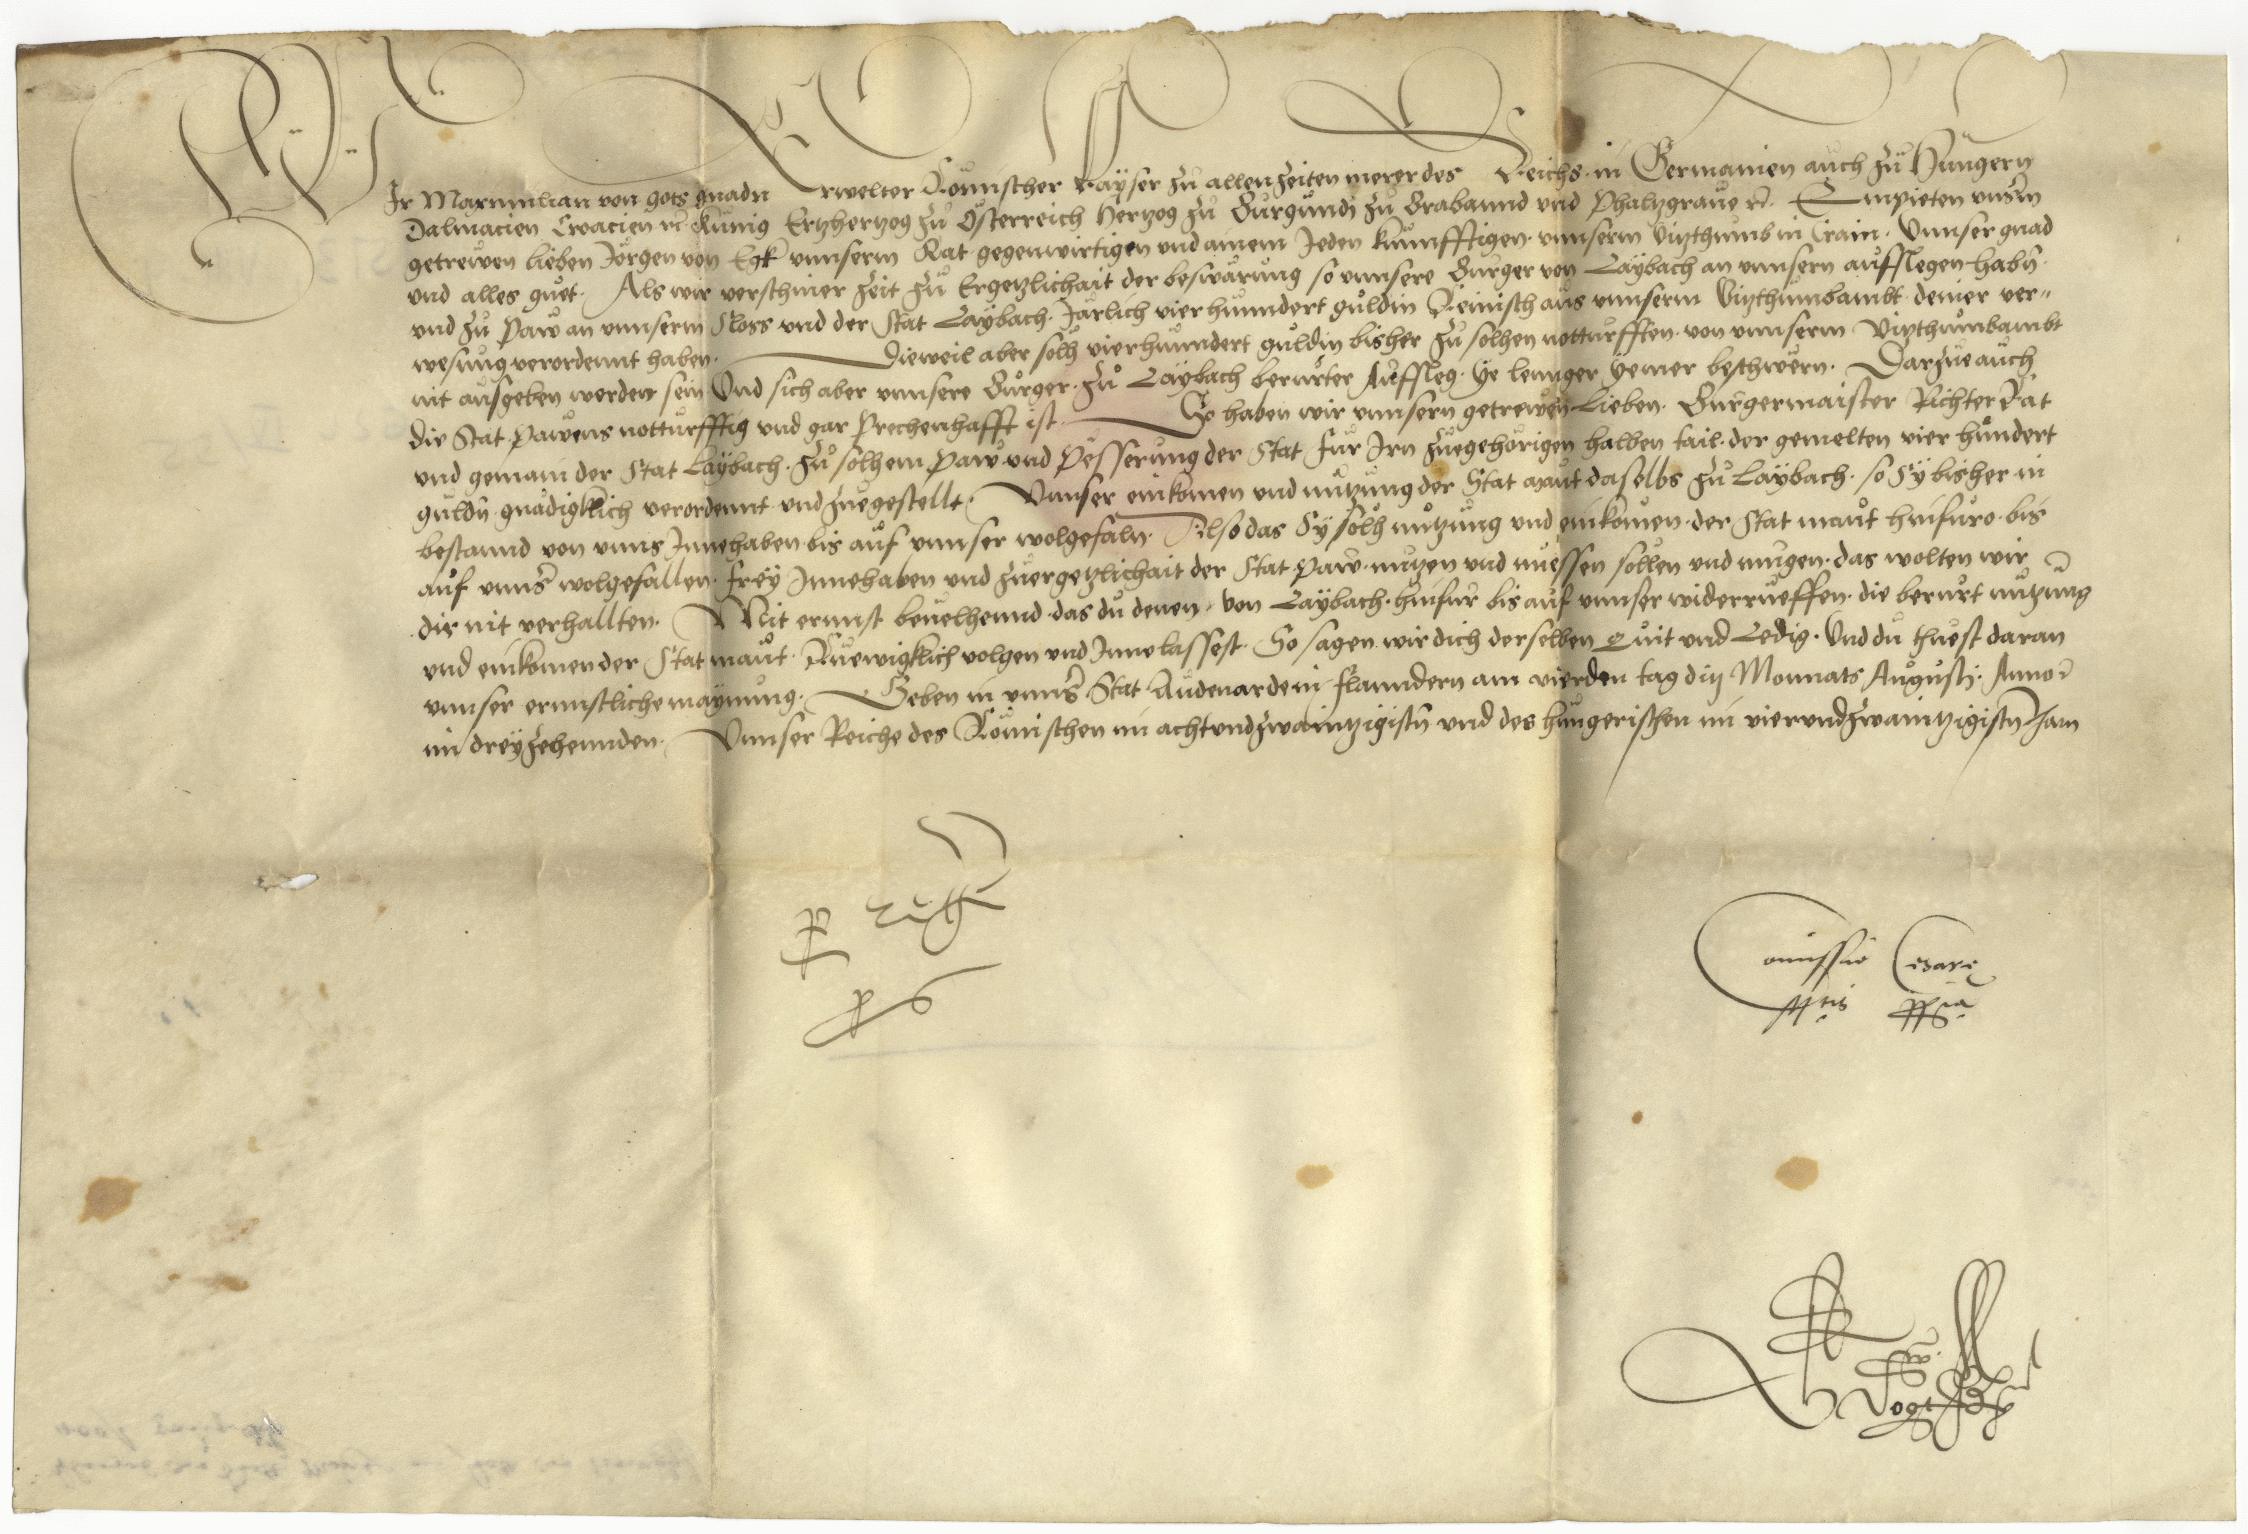 Wir Maximilian von gots gnadn Erwelter Römischer Kayser zu allenzeiten merer des Reichs in Germanien auch zu Hungern
Dalmacien Croacien rc. Kunig Ertzhertzog zu Österreich Hertzog zu Burgundi zu Brabannd vnd Phaltzgraue rc. Empieten vnserm
getrewen lieben Jörgen von Egk vnnserm Rat gegenwirtigen vnd ainem Jeden kunfftigen vnnserm Vitzthumb in Crain. Vnnser gnad
vnd alles guet. Als wir verschiner zeit zu Ergetzlichait der beswärung so vnnsere Burger von Laybach an vnnsern aufslegen habn
vnd zu Paw an vnnserm Sloss vnd der Stat Laybach. Järlich vierhunndert guldin Reinisch aus vnnserm Vitzthumbambt deiner ver-
wesung verordennt haben. Dieweil aber solh vierhunndert guldin bisher zu solhen notturfften von vnnserm Vitzthumbambt
nit ausgeben worden sein Vnd sich aber vnnsere Burger zu Laybach berurter Aufsleg ye lennger yemer beschwern. Darzue auch
die Stat Pawens notturfftig vnd gar Prechenhafft ist. So haben wir vnnsern getrewen Lieben. Burgermaister Richter Rat
vnd gemain der Stat Laybach. zu solhem Paw vnd Pesserung der Stat fur Irn zuegehörigen halben tail. der gemelten vier hundert
guldn gnädigklich verordennt vnd zuegestellt. Vnnser einkomen vnd nutzung der Stat maut daselbs zu Laybach. so Sy bisher in
bestannd von vnns Innehaben bis auf vnnser wolgefaln. Also das Sy solh nutzung vnd einkomen der Stat maut hinfuro bis
auf vnnsr wolgefallen. frey Innehaben vnd zu ergetzlichait der Stat Paw. nutzen vnd niessen sollen vnd mugen. das wolten wir
dir nit verhallten. Mit ernnst beuelhennd das du denen von Laybach. hinfur bis auf vnnser widerrueffen. die berurt nutzung
vnd einkomen der Stat maut. Ruewigklich volgen vnd Inne lassest. So sagen wir dich derselben Quit vnd Ledig. Vnd du thuest daran
vnnser ernnstliche maynung. Geben in vnnsr Stat Audenarde in Flanndern am vierden tag diss Monnats Augusti. Anno rc
im dreyzehennden. Vnnser Reiche des Römischen im achtundzwaintzigistn vnd des hungerischen im viervndzwaintzigistn Jarn
p regē
p s
Comissio Cesareę
Mtis ppria
Vogt